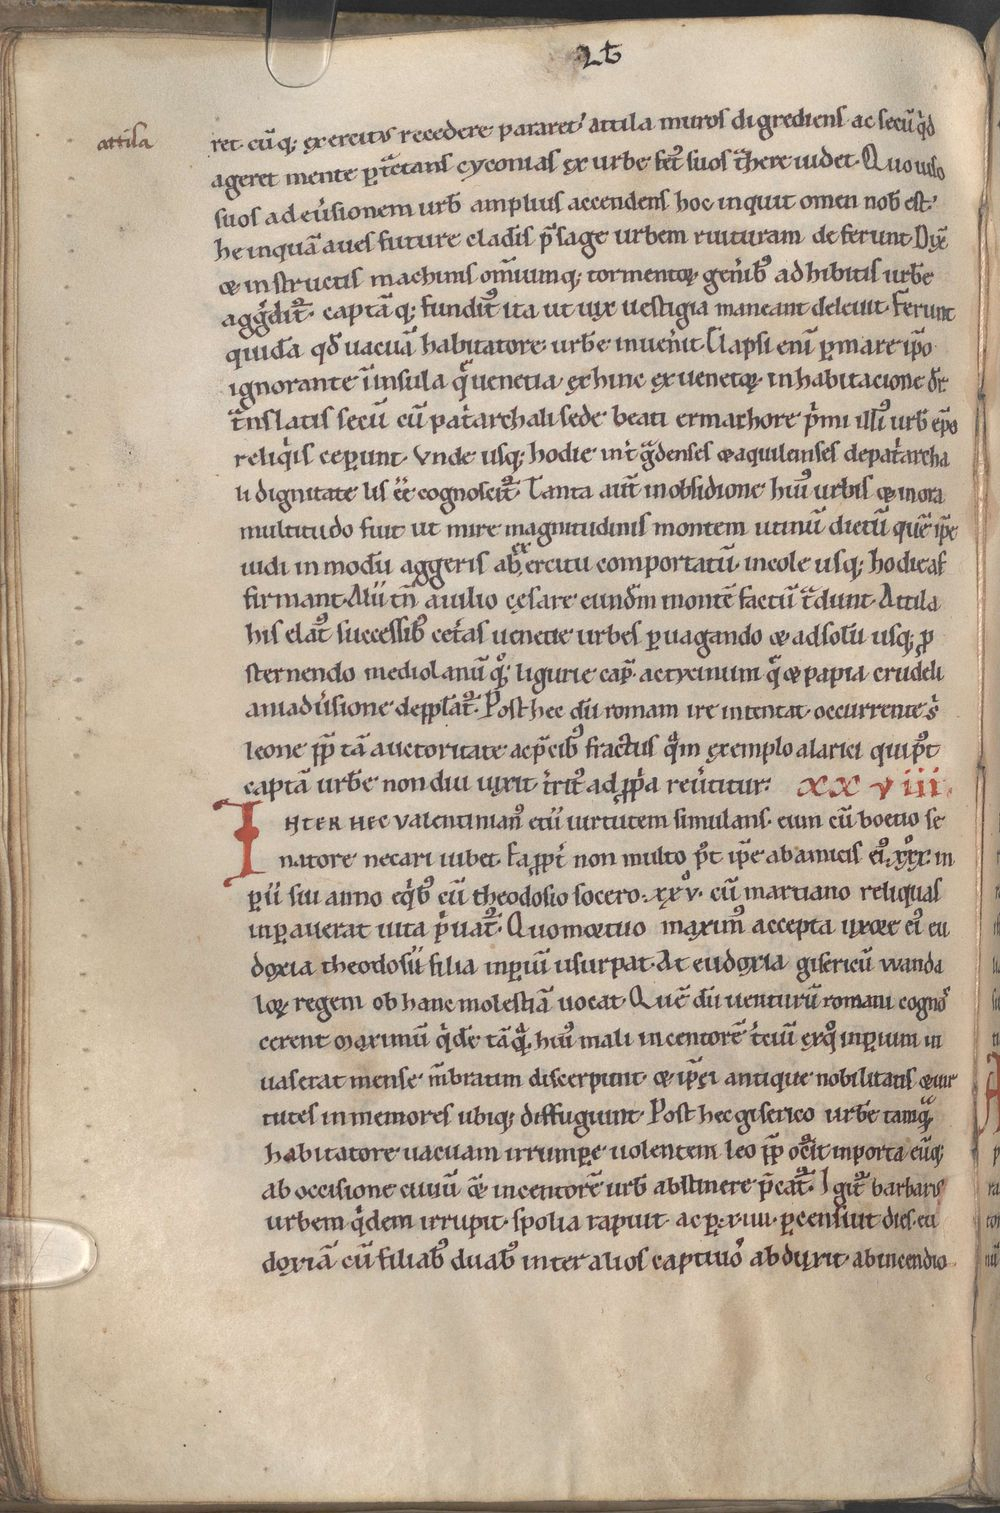 attila
ret· cu̅q; exercitus recedere pararet' attila muros digrediens ac secu̅ qͥd
ageret mente ꝑtͣctans cyconias ex urbe fet᷒ suos tͣhere uidet· Quo uiso
suos ad eu̓sionem urb̅ amplius accendens hoc inquit omen nob̅ est'
he inqua̅ aues future cladis p̅sage urbem ruituram deferunt Dix̅
& instructis machinis om̅iumq; tormentoꝝ gen̓ib᷒ adhibitis urbe̅
aggͣdit᷒· capta̅ q; fundit᷒ ita ut uix uestigia maneant deleuit· Ferunt
quida̅ qd̅ uacua̅ habitatore· urbe̅ inuen̓it· Elapsi eni̅ ꝑ mare ip̅o
ignorante i̅ insula q̅ uenetia exhinc ex uenetoꝝ inhabitacione dr̅
tͣnslatis secu̅ cu̅ patͥarchali sede beati ermachore pͥmi illi᷒ urb̅ ep̅o
reliqͥis ceperunt· Vnde usq; hodie int̓ gͣdenses & aquileinses de patͥarcha
li dignitate lis ee̅ cognoscit᷒· Tanta aut̅ in obsidione hui᷒ urbis & mora
multitudo fuit ut mire magnitudinis montem utinu̅ dictu̅ que̅ ip̅e
uidi in modu̅ aggeris ab exercitu comportatu̅· incole usq; hodie af
firmant· Alii tn̅ a iulio cesare eund̅m monte̅ factu̅ tͣdunt· Attila
his elat᷒ successib᷒ cet̓as uenetie urbes ꝑuagando & ad solu̅ usq; ꝓ
sternendo mediolanu̅ qͦꝫ ligurie cap̅· ac tycinum q̅ & papia crudeli
aniadu̓sione depp̅lat᷒· Post hec du̅ romam ire intentat· occurrente sͥ
leone pp̅ ta̅ auctoritate ac p̅cib᷒ fractus qͣm exemplo alarici qui pͦt
capta̅ urbe̅ non diu uixit tͥrit᷒ ad ꝓpͥa reu̓titur· XXVIII·
INTER HEC valentinian᷒ ecii uirtutem simulans· eum cu̅ boetio se
natore necari iubet· Ea ꝓpt̓ non multo pͦt ip̅e ab amicis ei᷒· xxx· in
ꝑii sui anno eqͥb᷒ cu̅ theodosio socero· xxv· cu̅ martiano reliquas
inꝑauerat iuta pͥuat᷒· Quo mortuo maxim᷒ accepta uxore ei᷒ eu
doxia theodosii filia inꝑiu̅ usurpat· At eudoxia gisericu̅ wanda
loꝝ regem ob hanc molestia̅ uocat· Que̅ du̅ uenturu̅ romani cogno
cerent maximu̅ qͥde̅ ta̅qͣ hui᷒ mali incentore̅ tͥciu̅ ex qͦ inꝑium in
uaserat mense m̅bratim discerpunt· & ip̅ei antique nobilitatis & uir
tutes inmemores ubiq; diffugiunt· Post hec giserico urbe̅ tamqͣ
habitatore uacuam irrumꝑe uolentem leo pp̅ occͬit in porta eu̅q;
ab occisione ciuiu̅ & incentore̅ urb̅ abstinere p̅cat᷒· Igit᷒ barbarus
urbem qͥdem irrupit· spolia rapuit· ac ꝑ· xiiii· ꝑcensiuit dies· eu
doxia̅ cu̅ filiab᷒ duab᷒ inter alios captiuos abduxit· ab incendio